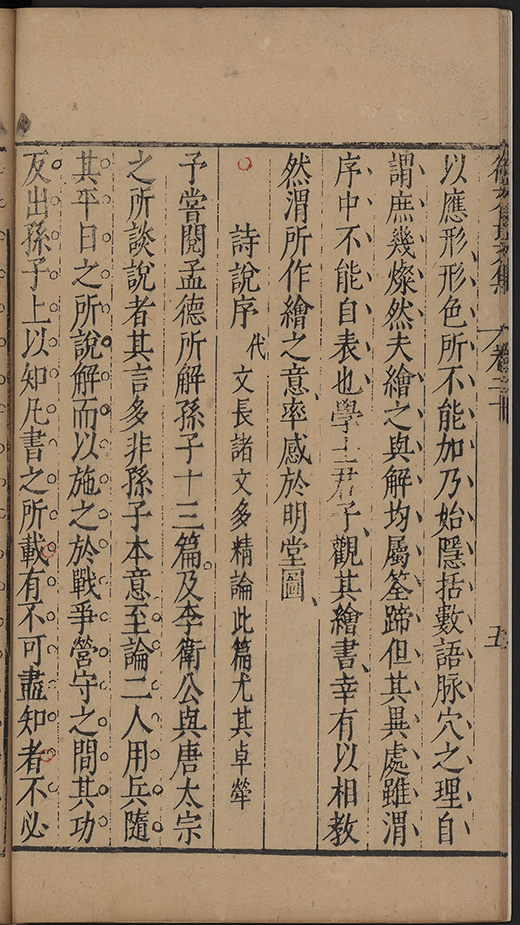 以應形、形色所不能加乃始隱括數語脉穴之理自
謂庶幾燦然夫繪之與解均屬筌蹄但其異處雖渭
序中不能自表也學士君子、觀其繪書、幸有以相教
然渭所作繪之意、率感於明堂圖、
詩說序代 文長諸文多精論此篇尤其卓犖
予嘗閱孟德所解孫子十三篇。及李衛公與唐太宗
之所談說者其言多非孫子本意至論二人用兵隨
其平日之所說解而以施之於戰爭營守之間其功
反出孫子上以知凡書之所載有不可盡知者不必
卷二十
五